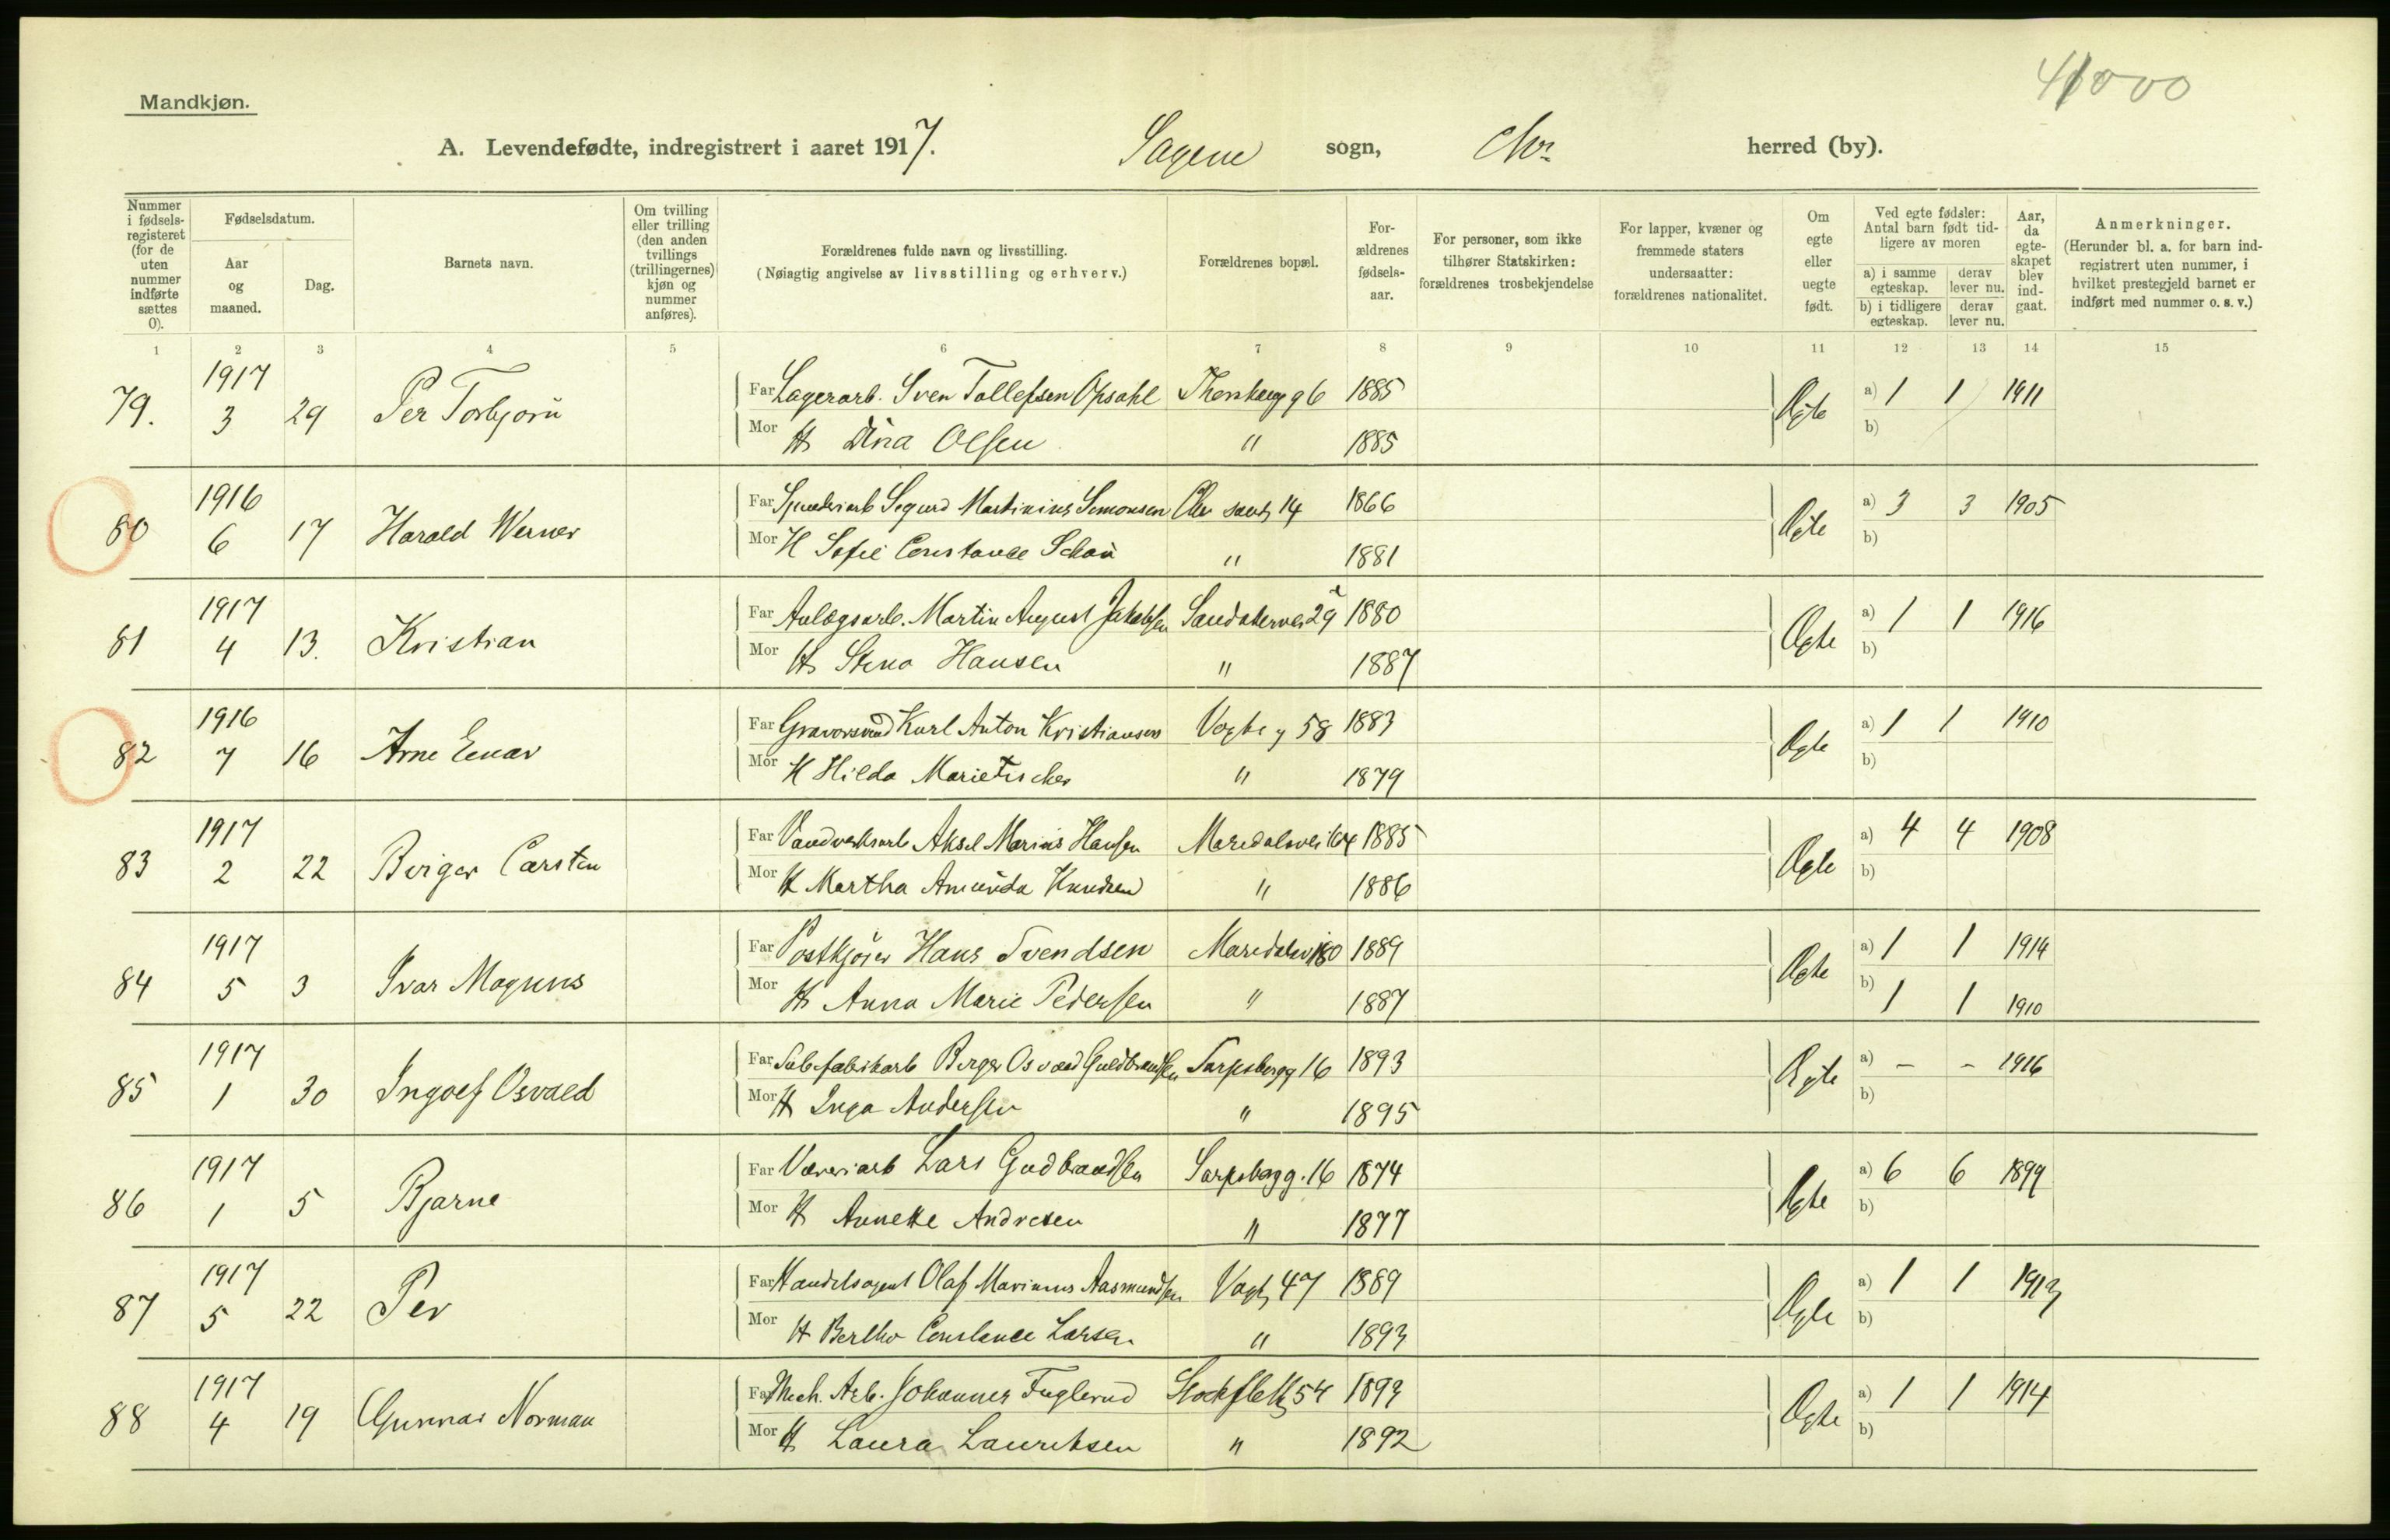 Mandkjøn.
A. Levendefødte, indregistrert i aaret 1917. Sagene sogn, Chr. herred (by).
Nummer i fødsels-registeret (for de uten nummer indførte sættes 0).
Fødselsdatum.
Aar og maaned.
Dag.
Barnets navn.
Om tvilling eller trilling (den anden tvillings (trillingernes) kjøn og nummer anføres).
Forældrenes fulde navn og livsstilling.
(Nøiagtig angivelse av livsstilling og erhverv.)
Forældrenes bopæl.
For-ældrenes fødsels-aar.
For personer, som ikke tilhører Statskirken: forældrenes trosbekjendelse
For lapper, kvæner og fremmede staters undersaatter: forældrenes nationalitet.
Om egte eller uegte født.
Ved egte fødsler: Antal barn født tid-ligere av moren
a) i samme egteskap. derav lever nu.
b) i tidligere egteskap. derav lever nu.
Aar, da egte-skapet blev ind-gaat.
Anmerkninger.
(Herunder bl. a. for barn ind-registrert uten nummer, i hvilket prestegjeld barnet er indført med nummer o. s. v.)
1 2 3 4 5 6 7 8 9 10 11 12 13 14 15
79. 1917 3 29 Per Torbjørn
Far Lagerarb. Sven Tollefsen Opsahl 6 1885 Egte a) 1 1 1911
Mor H Dina Olsen " 1885 b)
80 1916 6 17 Harald Werner
Far Spinderiarb Sigurd Martinius Simonsen 14 1866 Egte a) 3 3 1905
Mor H Sofie Constance Schou " 1881 b)
81 1917 4 13. Kristian
Far Anlægsarb. Martin August Jakobsen Sandakervei 29 1880 Egte a) 1 1 1916
Mor H Stina Hansen " 1887 b)
82 1916 7 16 Arne Einar
Far Gravørsvend Karl Anton Kristiansen Vogts g 58 1883 Egte a) 1 1 1910
Mor H Hilda Marie Fischer " 1879 b)
83 1917 2 22 Birger Carsten
Far Vandverksarb Aksel Marius Hansen Maridalsvei 164 1885 Egte a) 4 4 1908
Mor H Martha Amunda Knudsen " 1886 b)
84 1917 5 3 Ivar Magnus
Far Postkjører Hans Svendsen Maridalsv 180 1889 Egte a) 1 1 1914
Mor H Anna Marie Pedersen " 1887 b) 1 1 1910
85 1917 1 30 Ingolf Osvald
Far Birger Osvald Guldbrandsen Sarpsborgg 16 1893 Egte a) - - 1916
Mor H Inga Andersen " 1895 b)
86 1917 1 5 Bjarne
Far Væveriarb Lars Gudbrandsen Sarpsborgg. 16 1874 Egte a) 6 6 1899
Mor H Annette Andresen " 1877 b)
87 1917 5 22 Per
Far Handelsagent Olaf Marinius Aasmundsen Vogts 47 1889 Egte a) 1 1 1913
Mor H Bertha Constance Larsen " 1893 b)
88 1917 4 19 Gunnar Norman
Far Mech. Arb. Johannes Fuglerud Stockfleth 54 1893 Egte a) 1 1 1914
Mor H Laura Lauritsen " 1892 b)